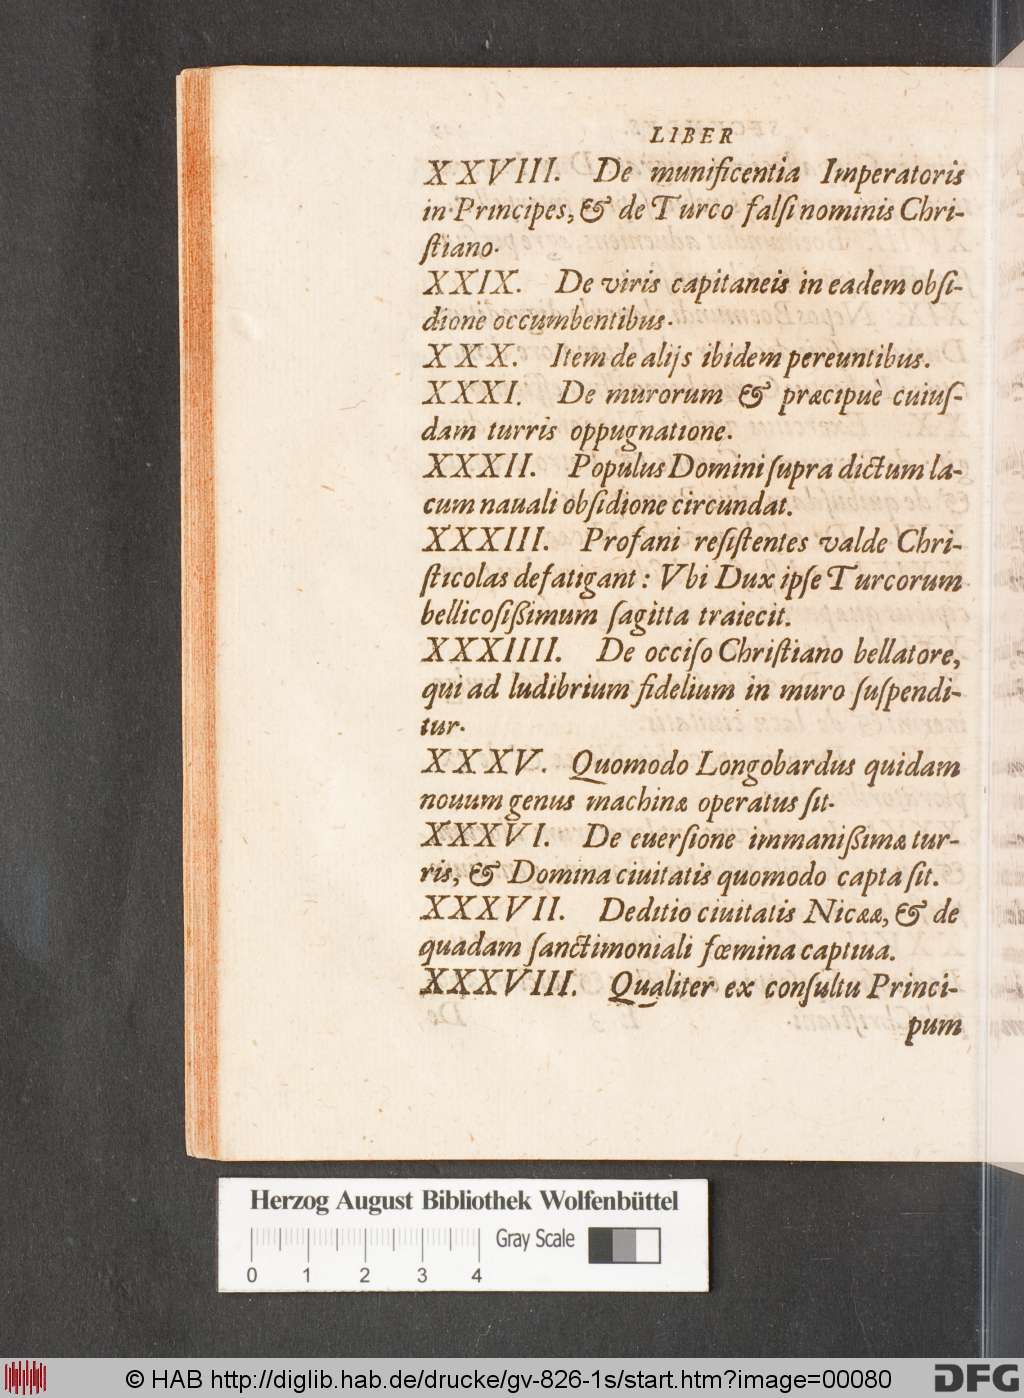 LIBER
XXVIII. De munificentia Imperatoris
in Principes, & de Turco falſi nominis Chri-
ſtiano.
XXIX. De viris capitaneis in eadem obſi-
dione occumbentibus.
XXX. Item de alijs ibidem pereuntibus.
XXXI. De murorum & præcipuè cuiuſ-
dam turris oppugnatione.
XXXII. Populus Domini ſupra dictum la-
cum nauali obſidione circundat.
XXXIII. Profani reſiſtentes valde Chri-
ſticolas defatigant: Vbi Dux ipſe Turcorum
bellicoſißimum ſagitta traiecit.
XXXIIII. De occiſo Chriſtiano bellatore,
qui ad ludibrium fidelium in muro ſuſpendi-
tur.
XXXV. Quomodo Longobardus quidam
nouum genus machinæ operatus ſit.
XXXVI. De euerſione immanißimæ tur-
ris, & Domina ciuitatis quomodo capta ſit.
XXXVII. Deditio ciuitatis Nicææ, & de
quadam ſanctimoniali fœmina captiua.
XXXVIII. Qualiter ex conſultu Princi-
pum
Herzog August Bibliothek Wolfenbüttel
Gray Scale
0 1 2 3 4
© HAB http://diglib.hab.de/drucke/gv-826-1s/start.htm?image=00080
DFG